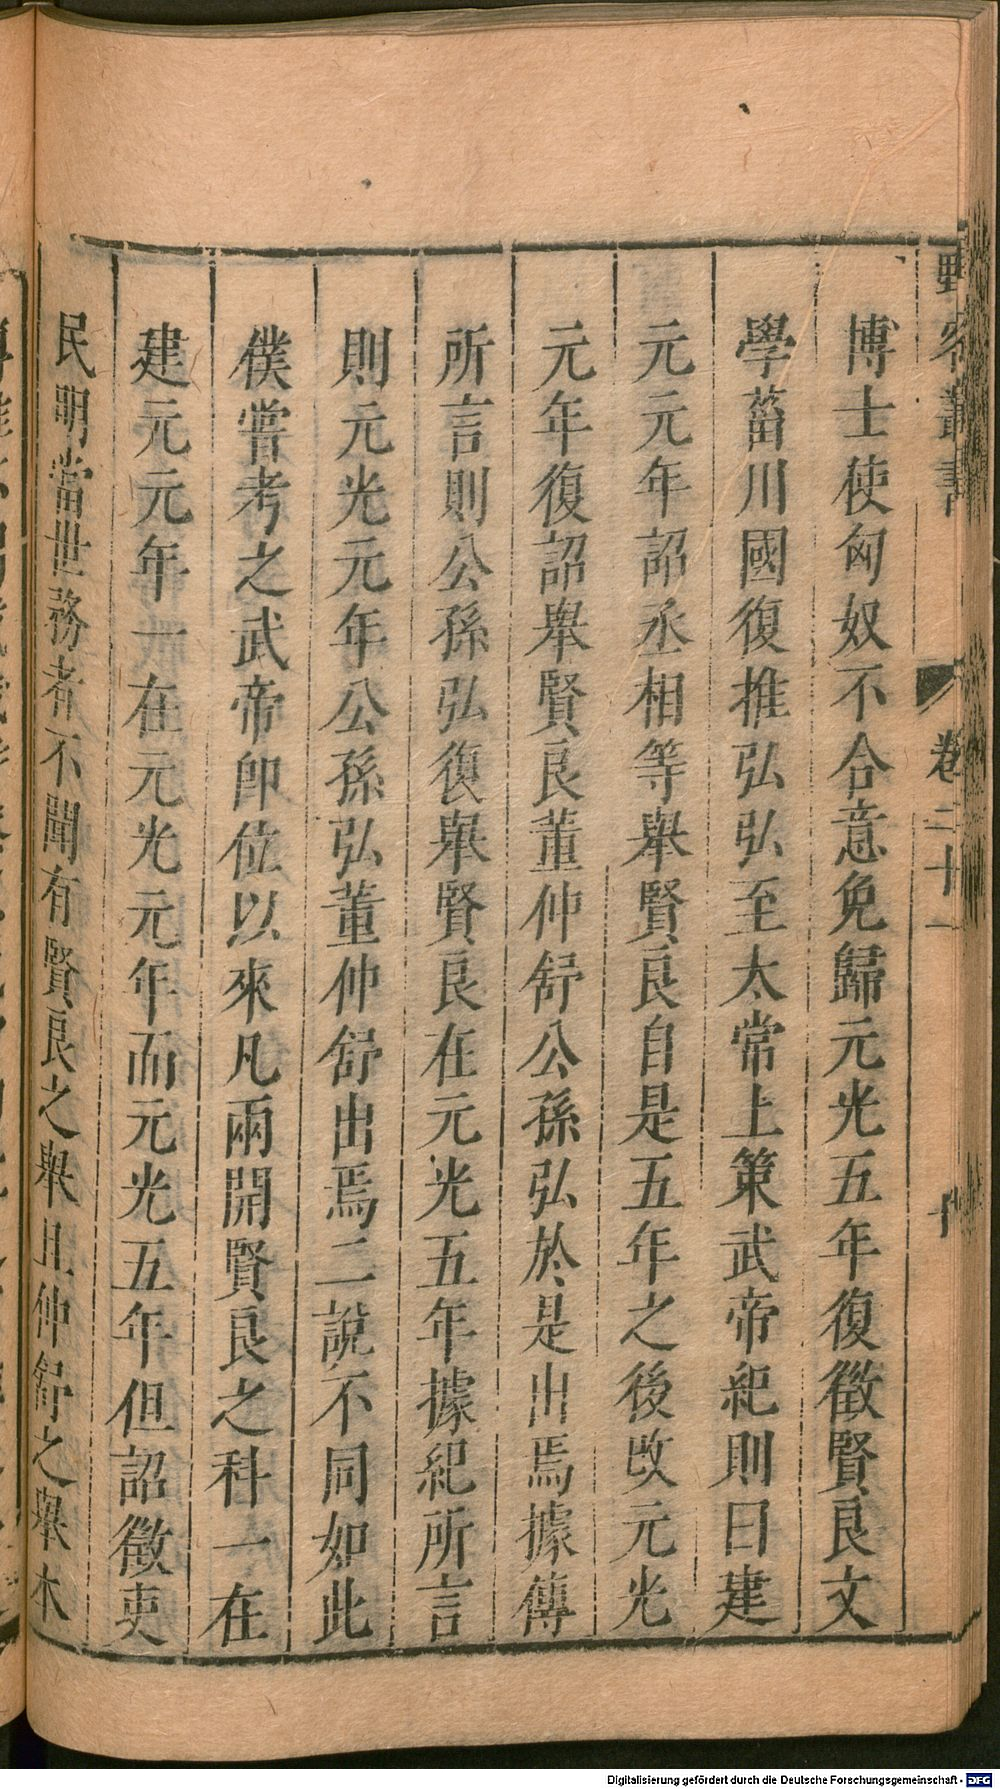 野客叢書
卷二十一
博士使匈奴不合意免歸元光五年復徵賢良文
學菑川國復推弘弘至太常上策武帝紀則曰建
元元年詔丞相等舉賢良自是五年之後改元光
元年復詔舉賢良董仲舒公孫弘於是出焉據傳
所言則公孫弘復舉賢良在元光五年據紀所言
則元光元年公孫弘董仲舒出焉二說不同如此
僕嘗考之武帝卽位以來凡兩開賢良之科一在
建元元年一在元光元年而元光五年但詔徵吏
民明當世務者不聞有賢良之舉且仲舒之舉木
Digitalisierung gefördert durch die Deutsche Forschungsgemeinschaft - DFG